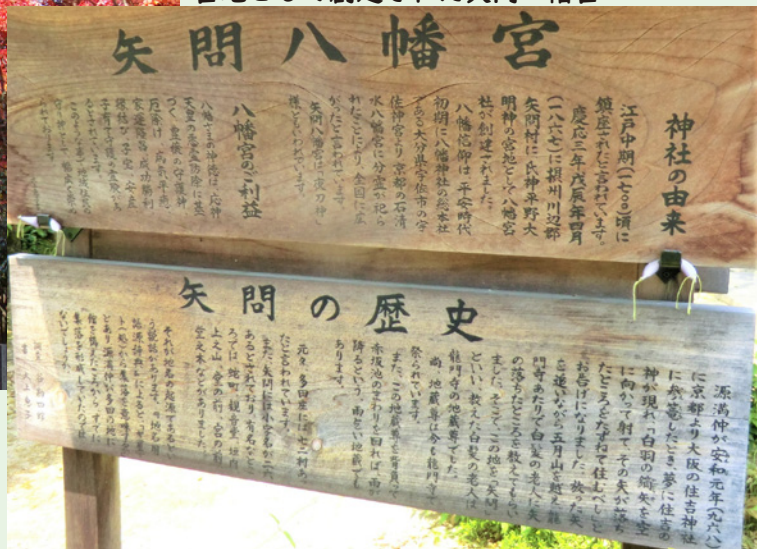 矢問八幡宮
神社の由来
江戸中期(一七〇〇)頃に
鎮座されたと言われています。
慶応三年戊辰年四月
(一八六七)に摂州川辺郡
矢問村に、氏神平野大
明神の宮地として八幡宮
社が創建されました。
八幡信仰は、平安時代
初期に八幡神社の総本社
である大分県宇佐市の宇
佐神宮より京都の石清
水八幡宮に分霊が祀ら
れたことにより、全国に広
がったと言われています。
矢問八幡宮は「夜刀神」
様ともいわれています。
八幡宮のご利益
八幡さまの神徳は、応神
天皇の
づく、皇室の守護神
厄除け
家運隆昌、成功勝利
子育て守護
るとされています。
このような
られております。
矢問の歴史
源満仲が安和元年(九六八)
に京都より大阪の住吉神社
に参篭したとき、夢に住吉の
神が現れ「白羽の鏑矢を空
に向かって射て、その矢が落ち
たところをたずねて住むべし」と
お告げになりました。放った矢
を追いながら五月山を越え龍
門寺あたりで白髪の老人に矢
の落ちたところを教えてもらい
ました。そこで、この地を「矢問」
といい、教えた白髪の老人は
龍門寺の地蔵尊でした。
尚、地蔵尊は今も龍門寺に
祭られています。
また、この地蔵尊を背負って
赤坂池のまわりを回れば、雨が
降るという、雨乞い地蔵でも
あります。
元々、多田庄には七二村あっ
たと言われています。
また、矢問には小字名が二六
あるとされており、有名なとこ
ろでは、蛇町、観音堂、垣内
上之山、堂の前、宮の前
堂之本などがありました。
それが地名の起源であるとい
う説話があります。
集落を形成していたのでは
ないでしょうか。